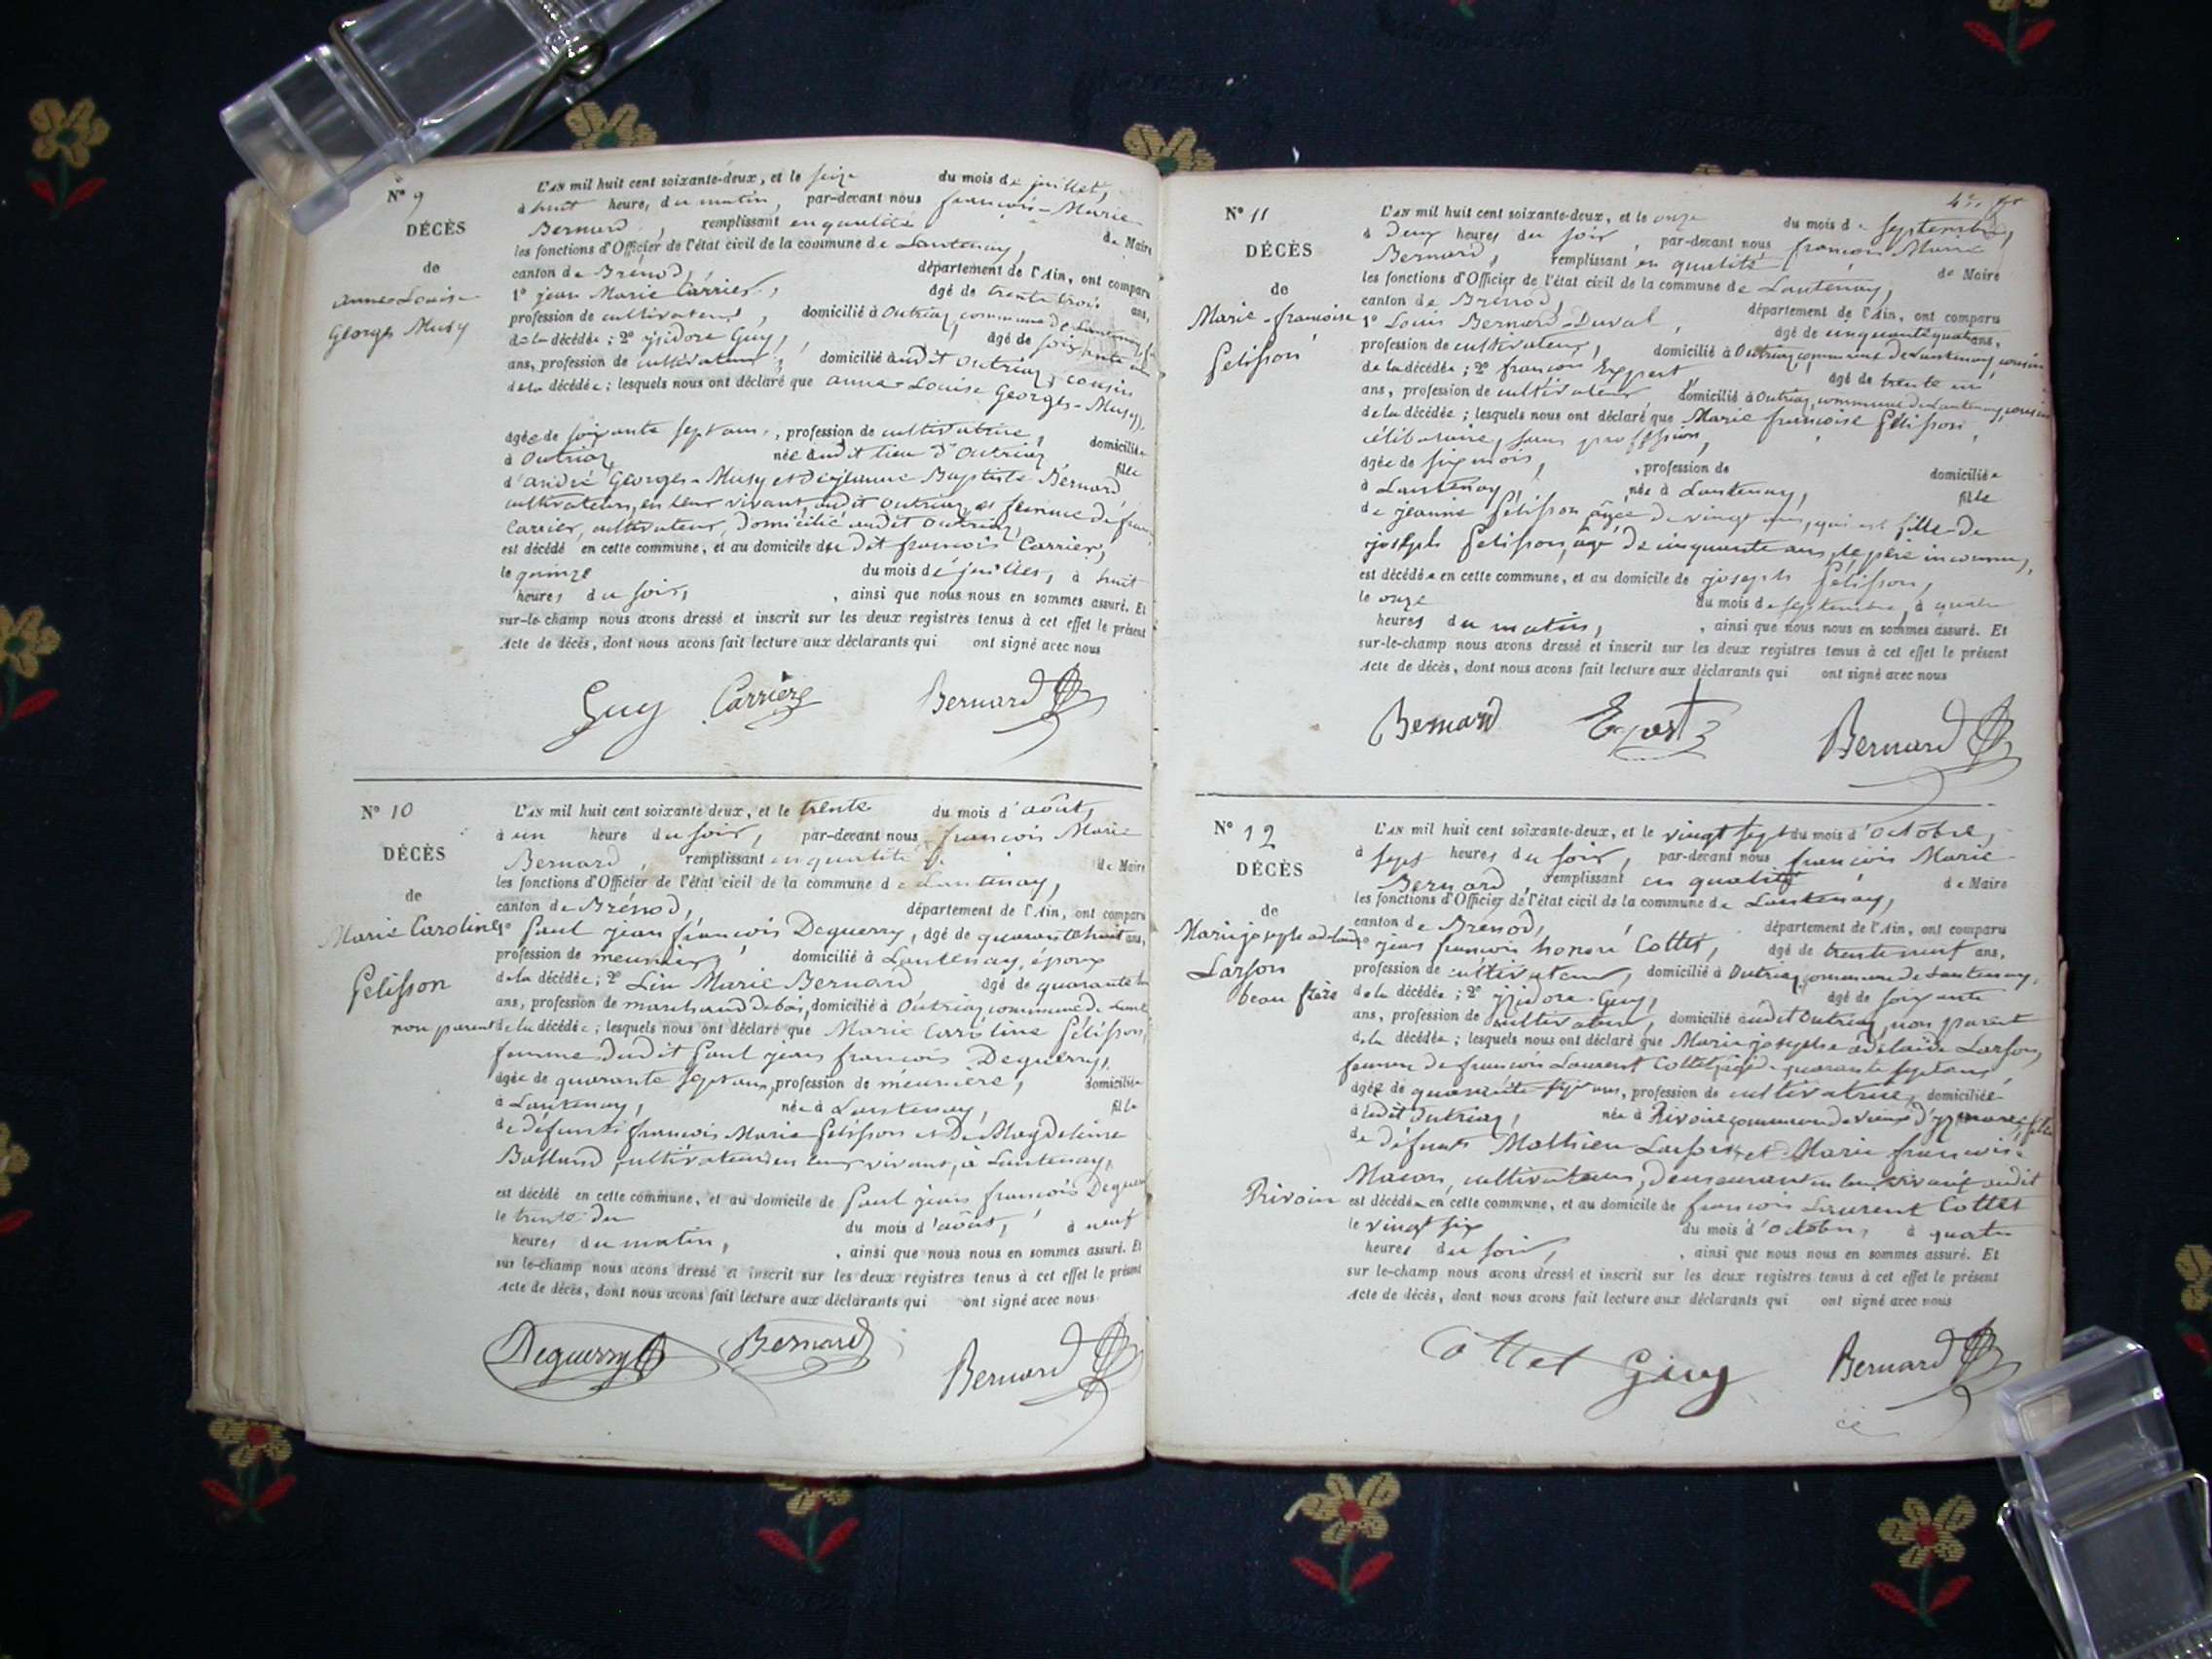 N° 9
DÉCÈS
de
Anne-Louise
Georges Musy
L'AN mil huit cent soixante-deux, et le seize du mois de juillet,
à huit heures du matin, par-devant nous françois-Marie
Bernard, remplissant en qualité de Maire
les fonctions d'Officier de l'état civil de la commune de Lantenay,
canton de Brénod, département de l'Ain, ont comparu
1° jean Marie Carrier, âgé de trente trois ans,
profession de cultivateur, domicilié à Outriaz, commune de Lantenay,
de la décédée ; 2° ysidore Guy, âgé de soixante
ans, profession de cultivateur, domicilié audit Outriaz, cousin
de la décédée ; lesquels nous ont déclaré que anne-Louise Georges-Musy,
âgée de soixante sept ans, profession de cultivatrice, domiciliée
à Outriaz, née audit lieu d'Outriaz, fille
d'andré Georges-Musy et de jeanne Baptiste Bernard
cultivateurs, en leur vivant, audit Outriaz, et femme de
Carrier, cultivateur, domicilié audit Outriaz,
est décédé en cette commune, et au domicile du dit françois Carrier,
le quinze du mois de juillet, à huit
heures du soir, ainsi que nous nous en sommes assuré. Et
sur-le-champ nous avons dressé et inscrit sur les deux registres tenus à cet effet le présent
Acte de décès, dont nous avons fait lecture aux déclarants qui ont signé avec nous
Guy Carrière Bernard
N° 10
DÉCÈS
de
Marie Caroline
Gelisson
non parent
L'AN mil huit cent soixante-deux, et le trente du mois d'août,
à un heure du soir, par-devant nous françois Marie
Bernard, remplissant en qualité de Maire
les fonctions d'Officier de l'état civil de la commune de Lantenay,
canton de Brénod, département de l'Ain, ont comparu
1° Paul jean françois Deguerry, âgé de quarante huit ans,
profession de meunier, domicilié à Lantenay, époux
de la décédée ; 2° Lin Marie Bernard, âgé de quarante
ans, profession de marchand de bois, domicilié à Outriaz commune de
de la décédée ; lesquels nous ont déclaré que Marie Caroline Gélisson,
femme dudit Paul jean françois Deguerry,
âgée de quarante sept ans, profession de meunière, domiciliée
à Lantenay, née à Lantenay, fille
de défunts françois Marie Gelisson et De Magdeleine
Balland, cultivateurs en leur vivant, à Lantenay,
est décédé en cette commune, et au domicile de Paul jean françois
le trente du du mois d'août, à neuf
heures du matin, ainsi que nous nous en sommes assuré. Et
sur le-champ nous avons dressé et inscrit sur les deux registres tenus à cet effet le présent
Acte de décès, dont nous avons fait lecture aux déclarants qui ont signé avec nous
Deguerry Bernard Bernard
N° 11
DÉCÈS
de
Marie-françoise
Gelisson
L'AN mil huit cent soixante-deux, et le onze du mois de septembre,
à deux heures du soir, par-devant nous françois Marie
Bernard, remplissant en qualité de Maire
les fonctions d'Officier de l'état civil de la commune de Lantenay,
canton de Brénod, département de l'Ain, ont comparu
1° Louis Bernard-Duval, âgé de cinquante quatre ans,
profession de cultivateur, domicilié à Outriaz, commune de Lantenay, cousin
de la décédée ; 2° françois Expert, âgé de trente un
ans, profession de cultivateur, domicilié à Outriaz, commune de Lantenay, cousin
de la décédée ; lesquels nous ont déclaré que Marie françoise Gélisson,
célibataire, sans profession,
âgée de six mois, profession de domiciliée
à Lantenay, née à Lantenay, fille
de jeanne Gélisson âgée de vingt ans, qui est fille de
joseph Gelisson, âgé de cinquante ans, le père inconnu,
est décédée en cette commune, et au domicile de joseph Gelisson,
le onze du mois de septembre, à quatre
heures du matin, ainsi que nous nous en sommes assuré. Et
sur-le-champ nous avons dressé et inscrit sur les deux registres tenus à cet effet le présent
Acte de décès, dont nous avons fait lecture aux déclarants qui ont signé avec nous
Bernard Expert Bernard
N° 12
DÉCÈS
de
Marie josephe adelaide
Larson
beau frère
Rivoire
L'AN mil huit cent soixante-deux, et le vingt sept du mois d'octobre,
à sept heures du soir, par-devant nous françois Marie
Bernard, remplissant en qualité de Maire
les fonctions d'Officier de l'état civil de la commune de Lantenay,
canton de Brénod, département de l'Ain, ont comparu
1° jean françois honoré Cottet, âgé de trente neuf ans,
profession de cultivateur, domicilié à Outriaz, commune de Lantenay,
de la décédée ; 2° ysidore Guy, âgé de soixante
ans, profession de cultivateur, domicilié audit Outriaz, non parent
de la décédée ; lesquels nous ont déclaré que Marie josephe adelaïde Larson,
femme de françois Laurent Cottet, âgé de quarante sept ans,
âgée de quarante sept ans, profession de cultivatrice, domiciliée
à ludit Outriaz, née à Rivoire commune de Vieux d'yzenave, fille
de défunts Mathieu Larson et Marie françoise
Macon, cultivateurs, demeurant en leur vivant audit
est décédée en cette commune, et au domicile de françois Laurent Cottet
le vingt six du mois d'octobre, à quatre
heures du soir, ainsi que nous nous en sommes assuré. Et
sur le-champ nous avons dressé et inscrit sur les deux registres tenus à cet effet le présent
Acte de décès, dont nous avons fait lecture aux déclarants qui ont signé avec nous
Cottet Guy Bernard